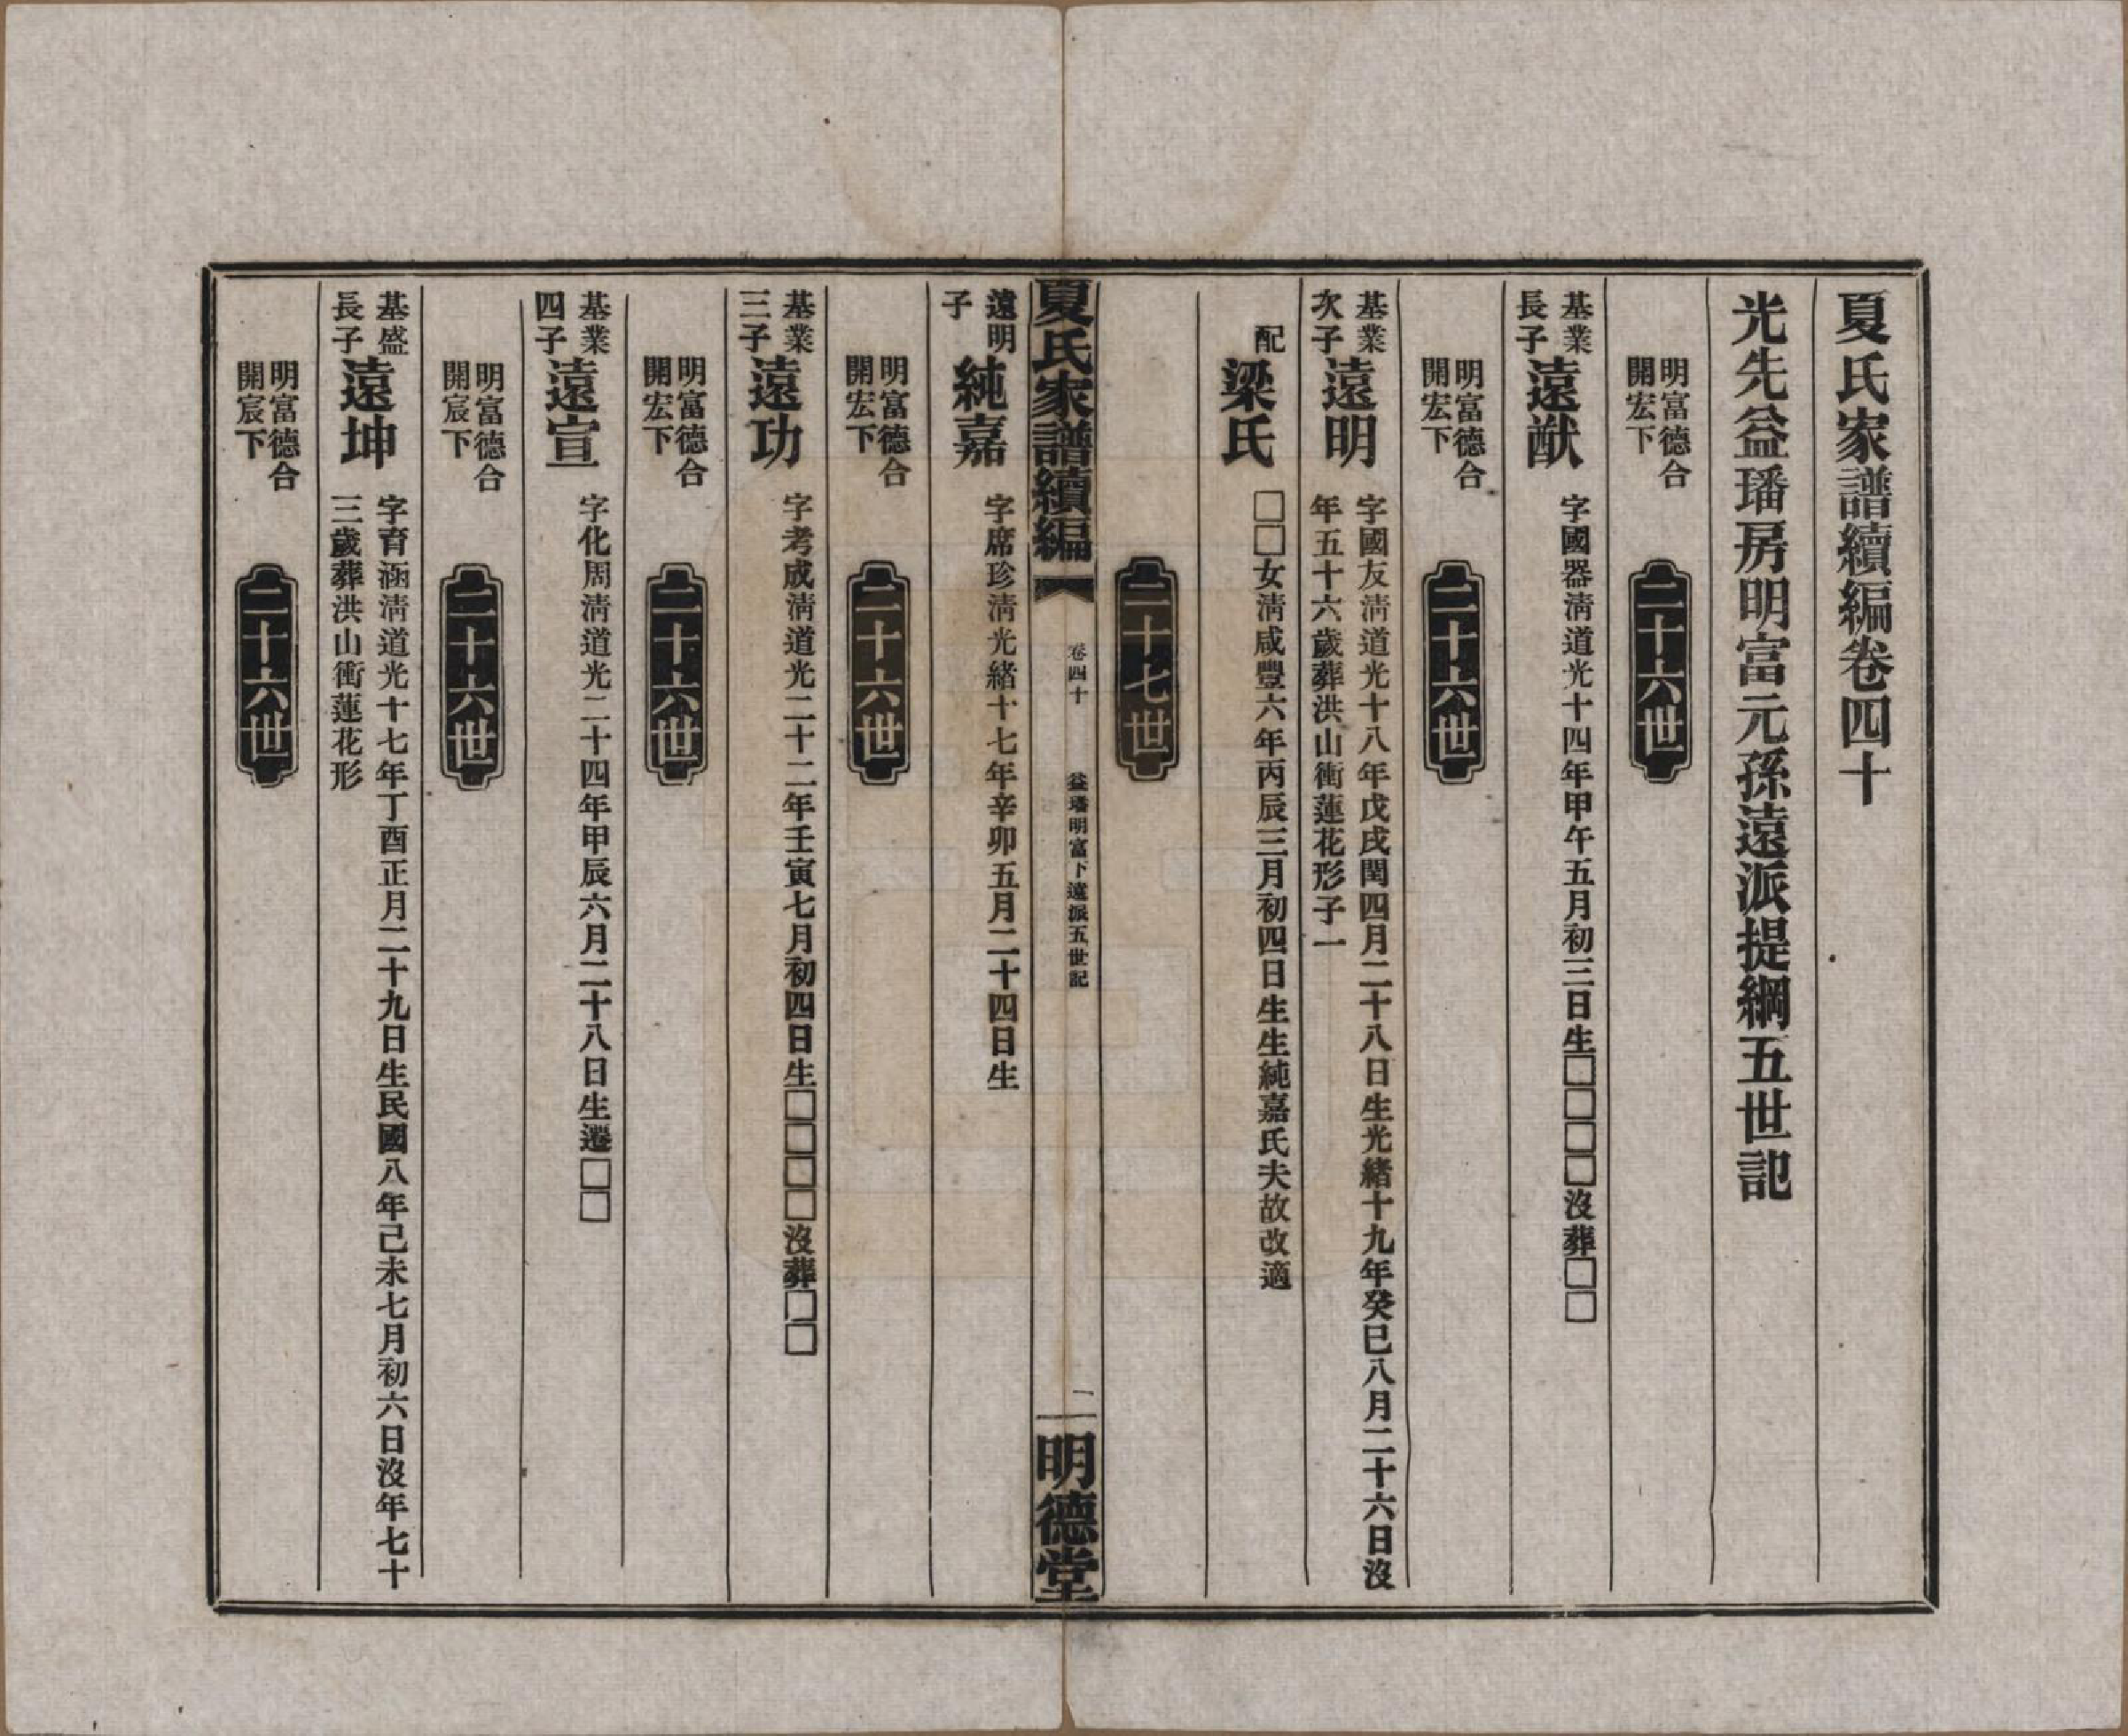 夏氏家譜續編卷四十
光先益璠房明富元孫遠派提綱五世記
明富德合
開宏下
二十六世
基業
長子
遠猷
字國器清道光十四年甲午五月初三日生□□□□沒葬□□
明富德合
開宏下
二十六世
基業
次子
遠明
字國友清道光十八年戊戌閏四月二十八日生光緒十九年癸巳八月二十六日沒
年五十六歲葬洪山衝蓮花形子一
配
梁氏
□□女清咸豐六年丙辰三月初四日生生純嘉氏夫故改適
二十七世
夏氏家譜續編
卷四十
益璠明富下遠派五世記
一
明德堂
遠明
子
純嘉
字席珍清光緒十七年辛卯五月二十四日生
明富德合
開宏下
二十六世
基業
三子
遠功
字考成清道光二十二年壬寅七月初四日生□□□□沒葬□□
明富德合
開宏下
二十六世
基業
四子
遠宣
字化周清道光二十四年甲辰六月二十八日生遷□□
明富德合
開宸下
二十六世
基盛
長子
遠坤
字育涵清道光十七年丁酉正月二十九日生民國八年己未七月初六日沒年七十
三歲葬洪山衝蓮花形
明富德合
開宸下
二十六世